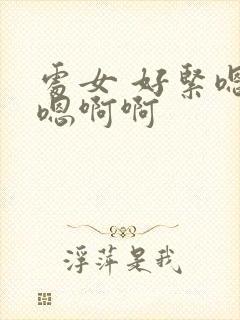 處女 好緊嗯
嗯啊啊
浮萍是我